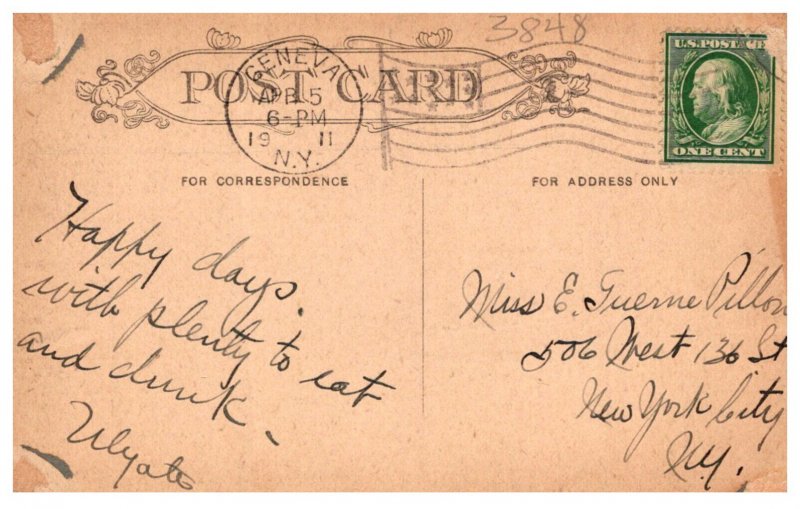 3848
U.S. POSTAGE
ONE CENT
POST CARD
GENEVA
APR 5
6-PM
19 11
N.Y.
FOR CORRESPONDENCE
FOR ADDRESS ONLY
Happy days.
with plenty to eat
and drink.
Miss E. Tuerne Pillon
506 West 136 St
New York City
N.Y.